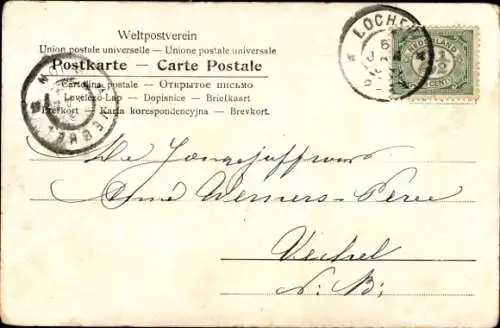 Weltpostverein
Union postale universelle — Unione postale universale
Postkarte — Carte Postale
Cartolina postale — Открытое письмо
Levelező-Lap — Dopisnice — Briefkaart
Brefkort — Karta korespondencyjna — Brevkort.
LOCHEM
NEDERLAND
CENT
De Jongejuffrouw
Werners
N. B.